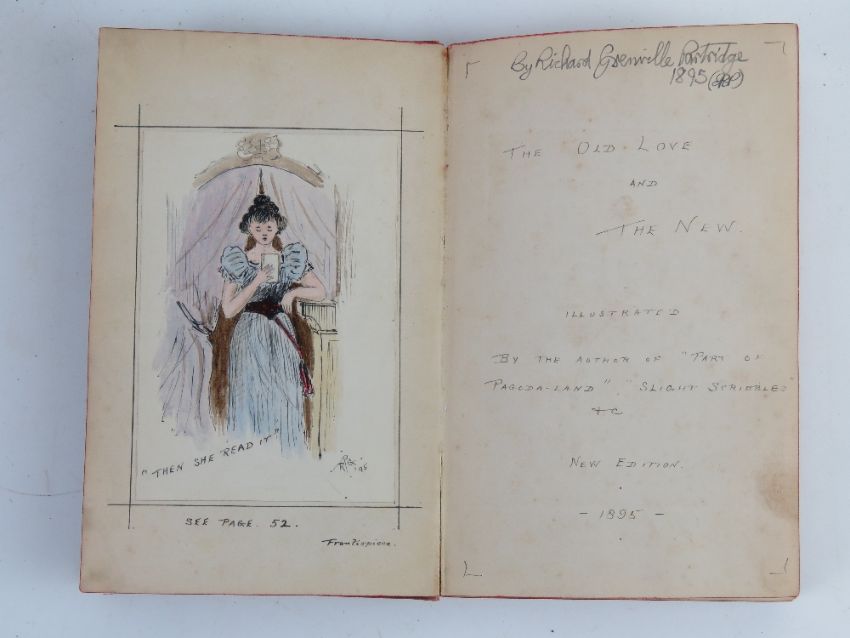 "THEN SHE READ IT"
'95
SEE PAGE. 52.
Frontispiece.
By Richard Grenville Partridge
1895
THE OLD LOVE
AND
THE NEW.
ILLUSTRATED
BY THE AUTHOR OF "PART OF
PAGODA-LAND", "SLIGHT SCRIBBLES"
&C
NEW EDITION.
- 1895 -